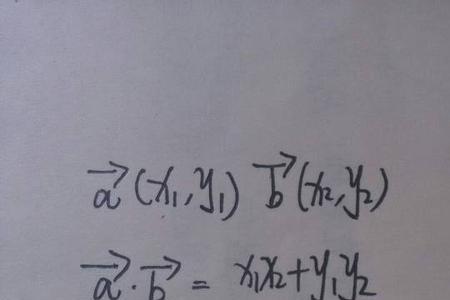 a⃗ (x₁,y₁) b⃗ (x₂,y₂)
a⃗ · b⃗ = x₁x₂+y₁y₂